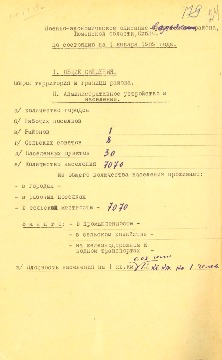 Военно-экономическое описание района,
Тюменской области,
по состоянию на 1 января
I. ОБЩИЕ СВЕДЕНИЯ.
территории и границы района.
II. Административное устройство и
население.
а) количество городов
б) Рабочих поселков
в) Районов 1
г) Сельских советов 8
д) Населенных пунктов 30
е) Количество населения 7070
Из общего количества населения проживают:
- в городах -
- в рабочих поселках -
- в сельской местности - 7070
- в промышленности -
- в сельском хозяйстве -
- на железнодорожном и
водном транспорте -
ж) Плотность населения на 1 кв. км